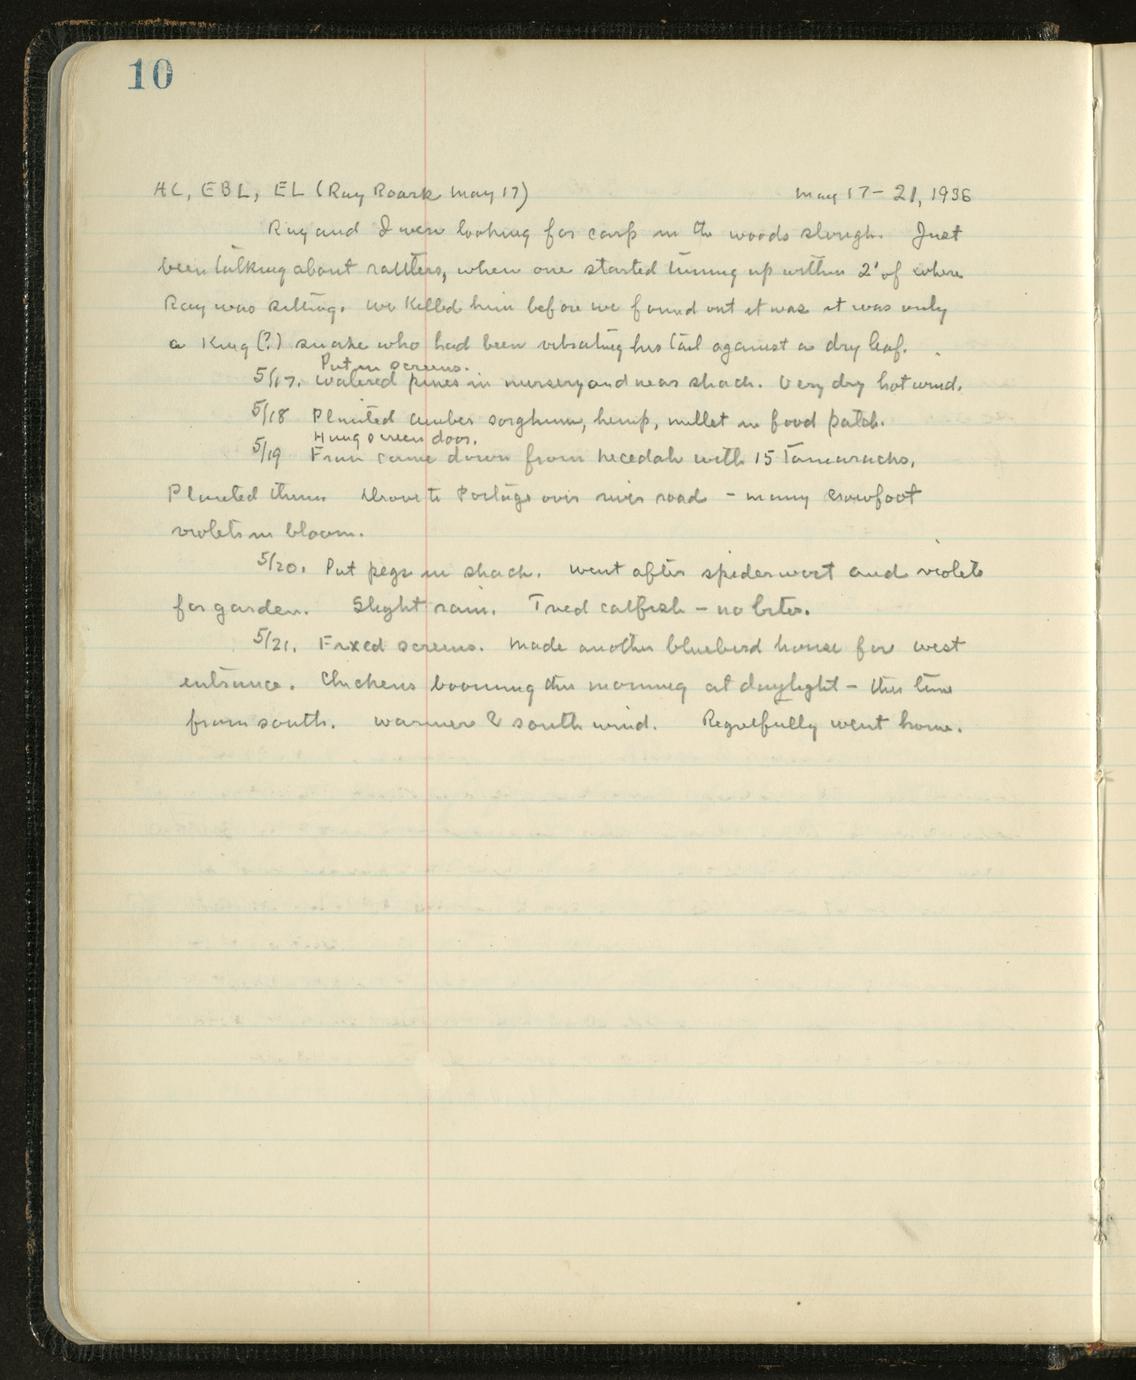 10
AL, EBL, EL (Ray Roark May 17) May 17-21, 1936
Ray and I were looking for carp in the woods slough. Just
been talking about rattlers, when one started tuning up within 2' of where
Ray was sitting. We killed him before we found out it was it was only
a King (?) snake who had been vibrating his tail against a dry leaf.
Put in screens.
5/17. Watered pines in nursery and near shack. Very dry hot wind.
5/18 Planted amber sorghum, hemp, millet in food patch.
Hung screen door.
5/19 Fran came down from Necedah with 15 Tamaracks.
Planted them. Drove to Portage over river road - many crowfoot
violets in bloom.
5/20. Put pegs in shack. Went after spiderwort and violets
for garden. Slight rain. Tried catfish - no bites.
5/21. Fixed screens. Made another bluebird house for west
entrance. Chickens booming this morning at daylight - this time
from south. Warmer & south wind. Regretfully went home.